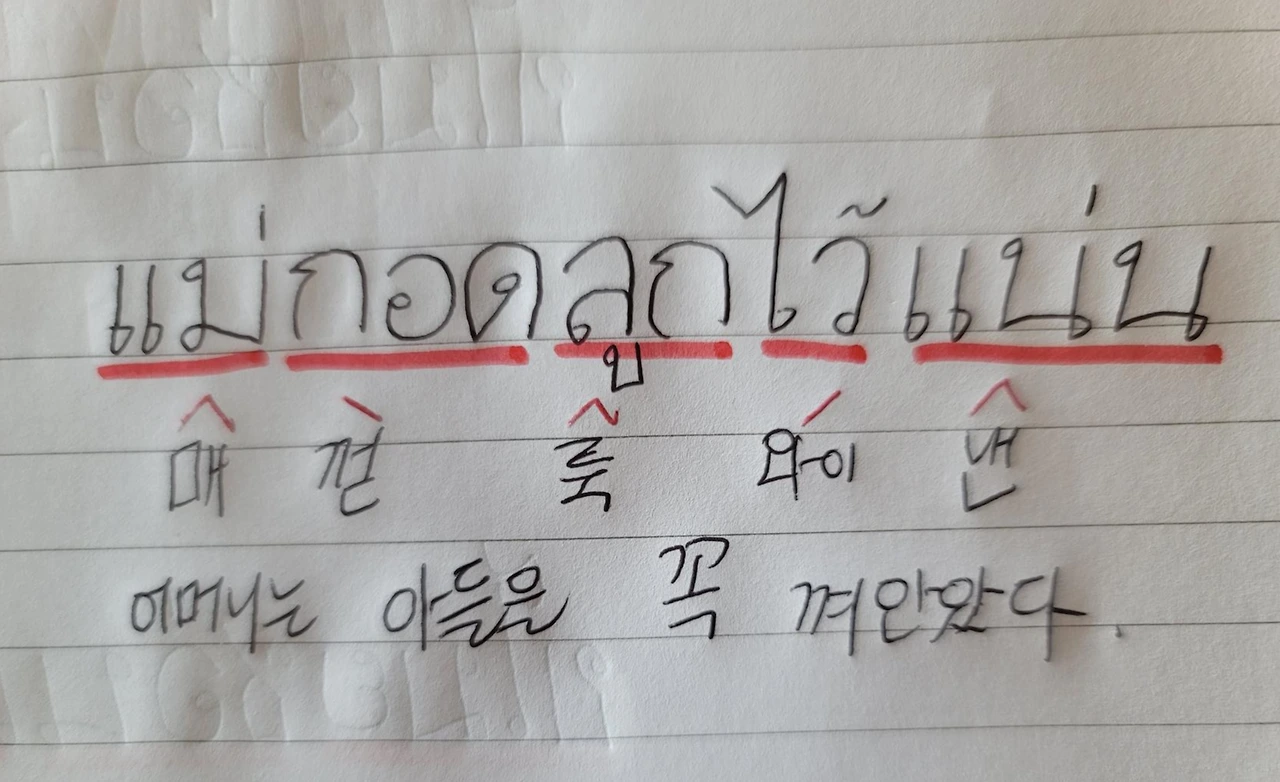 แม่กอดลูกไว้แน่น
매 껃 룩 와이 낸
어머니는 아들은 꼭 껴안았다.